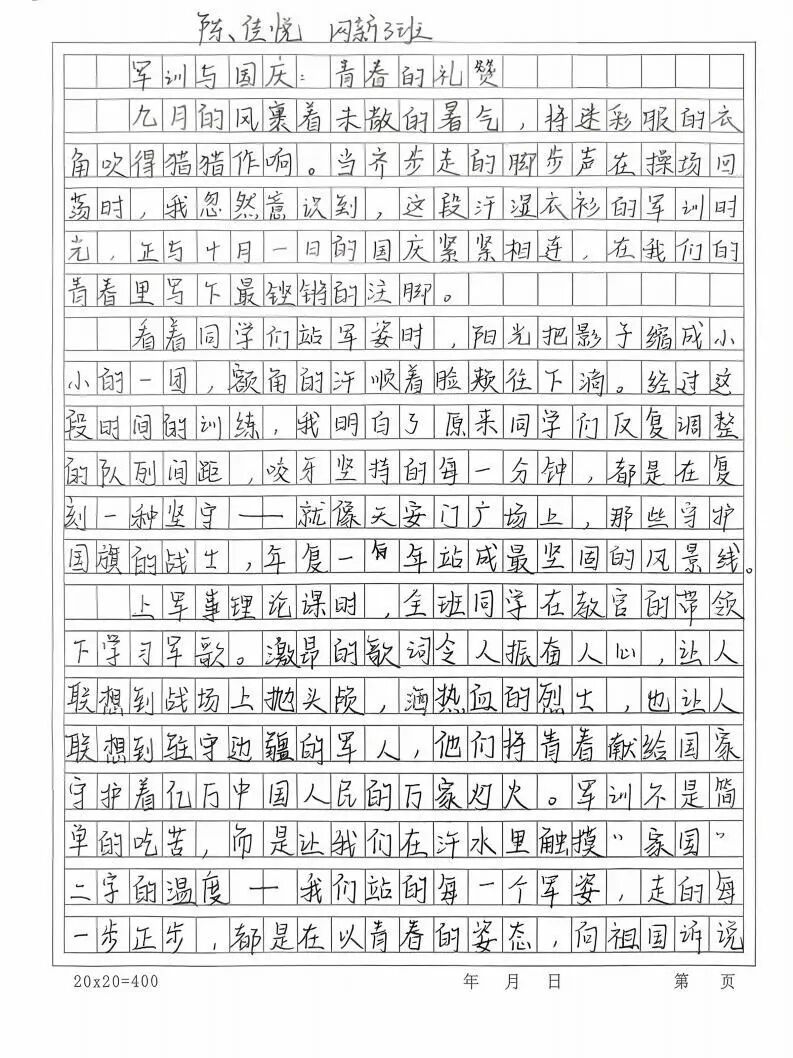 陈佳悦 网新3班
军训与国庆：青春的礼赞
九月的风裹着未散的暑气，将迷彩服的衣
角吹得猎猎作响。当齐步走的脚步声在操场回
荡时，我忽然意识到，这段汗湿衣衫的军训时
光，正与十月一日的国庆紧紧相连，在我们的
青春里写下最铿锵的注脚。
看着同学们站军姿时，阳光把影子缩成小
小的一团，额角的汗顺着脸颊往下滴。经过这
段时间的训练，我明白了原来同学们反复调整
的队列间距，咬牙坚持的每一分钟，都是在复
刻一种坚守——就像天安门广场上，那些守护
国旗的战士，年复一年站成最坚固的风景线。
上军事理论课时，全班同学在教官的带领
下学习军歌。激昂的歌词令人振奋人心，让人
联想到战场上抛头颅，洒热血的烈士，也让人
联想到驻守边疆的军人，他们将青春献给国家
守护着亿万中国人民的万家灯火。军训不是简
单的吃苦，而是让我们在汗水里触摸“家国”
二字的温度——我们站的每一个军姿，走的每
一步正步，都是在以青春的姿态，向祖国诉说
20x20=400 年 月 日 第 页